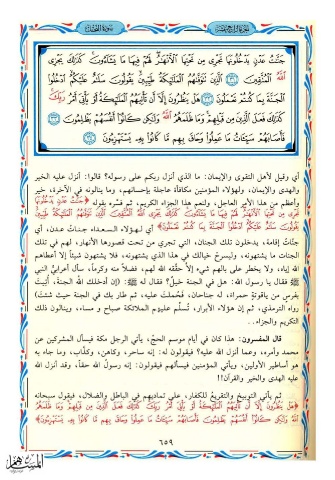 الجزء الرابع عشر
سورة النحل
جَنَّتُ عَدْنٍ يَدْخُلُونَهَا تَجْرِى مِن تَحْتِهَا الْأَنْهَرُ لَهُمْ فِيهَا مَا يَشَآءُونَ كَذَلِكَ يَجْزِى
اللَّهُ الْمُتَّقِينَ ٣١ الَّذِينَ تَتَوَفَّىهُمُ الْمَلَئِكَةُ طَيِّبِينَ يَقُولُونَ سَلَمٌ عَلَيْكُمُ ادْخُلُوا
الْجَنَّةَ بِمَا كُنتُمْ تَعْمَلُونَ ٣٢ هَلْ يَنظُرُونَ إِلَّآ أَن تَأْتِيَهُمُ الْمَلَئِكَةُ أَوْ يَأْتِىَ أَمْرُ رَبِّكَ
كَذَلِكَ فَعَلَ الَّذِينَ مِن قَبْلِهِمْ وَمَا ظَلَمَهُمُ اللَّهُ وَلَكِن كَانُوٓا أَنفُسَهُمْ يَظْلِمُونَ ٣٣
فَأَصَابَهُمْ سَيِّئَاتُ مَا عَمِلُوا وَحَاقَ بِهِم مَّا كَانُوا بِهِ يَسْتَهْزِءُونَ ٣٤
أي وقيل لأهل التقوى والإيمان: ما الذي أنزل ربكم على رسوله؟ قالوا: أنزل عليه الخير
والهدى والإيمان، ولهؤلاء المؤمنين مكافأة عاجلة بإحسانهم، وما ينالونه في الآخرة، خير
وأعظم من هذا الأمر العاجل، ولنعم هذا الجزاء الكريم، ثم فسّره بقوله ﴿جَنَّتُ عَدْنٍ يَدْخُلُونَهَا
تَجْرِى مِن تَحْتِهَا الْأَنْهَرُ لَهُمْ فِيهَا مَا يَشَآءُونَ كَذَلِكَ يَجْزِى اللَّهُ الْمُتَّقِينَ الَّذِينَ تَتَوَفَّىهُمُ الْمَلَئِكَةُ طَيِّبِينَ
يَقُولُونَ سَلَمٌ عَلَيْكُمُ ادْخُلُوا الْجَنَّةَ بِمَا كُنتُمْ تَعْمَلُونَ﴾ أي لهؤلاء السعداء جنات عدن، أي
جنات إقامة، يدخلون تلك الجنان، التي تجري من تحت قصورها الأنهار، لهم في تلك
الجنات ما يشتهونه، وليسرح خيالك في هذا الذي يشتهونه، فلا يشتهون شيئاً إلا أعطاهم
الله إياه، ولا يخطر على بالهم شيء إلا حقّقه الله لهم، فضلاً منه وكرماً، سأل أعرابيٌّ النبي
ﷺ فقال يا رسول الله: هل في الجنة خيل؟ فقال له ﷺ: (إن أدخلك الله الجنة، أُتيت
بفرس من ياقوتة حمراء، له جناحان، فحُملت عليه، ثم طار بك في الجنة حيث شئت)
رواه الترمذي، ثم إن هؤلاء الأبرار، تُسلّم عليهم الملائكة صباح و مساء، وينالون ذلك
التكريم والجزاء..
قال المفسرون: هذا كان في أيام موسم الحجّ، يأتي الرجل مكة فيسأل المشركين عن
محمد وأمره، وعما أنزل الله عليه؟ فيقولون له: إنه ساحر، وكاهن، وكذّاب، وما جاء به
هو أساطير الأولين، ويأتي المؤمنين فيسألهم فيقولون: إنه رسول الله حقاً، وقد أنزل الله
عليه الهدى والخير والقرآن!!
ثم يأتي التوبيخ والتقريع للكفار، على تماديهم في الباطل والضلال، فيقول سبحانه
﴿هَلْ يَنظُرُونَ إِلَّآ أَن تَأْتِيَهُمُ الْمَلَئِكَةُ أَوْ يَأْتِىَ أَمْرُ رَبِّكَ كَذَلِكَ فَعَلَ الَّذِينَ مِن قَبْلِهِمْ وَمَا ظَلَمَهُمُ
اللَّهُ وَلَكِن كَانُوٓا أَنفُسَهُمْ يَظْلِمُونَ فَأَصَابَهُمْ سَيِّئَاتُ مَا عَمِلُوا وَحَاقَ بِهِم مَّا كَانُوا بِهِ يَسْتَهْزِءُونَ﴾
٦٥٩